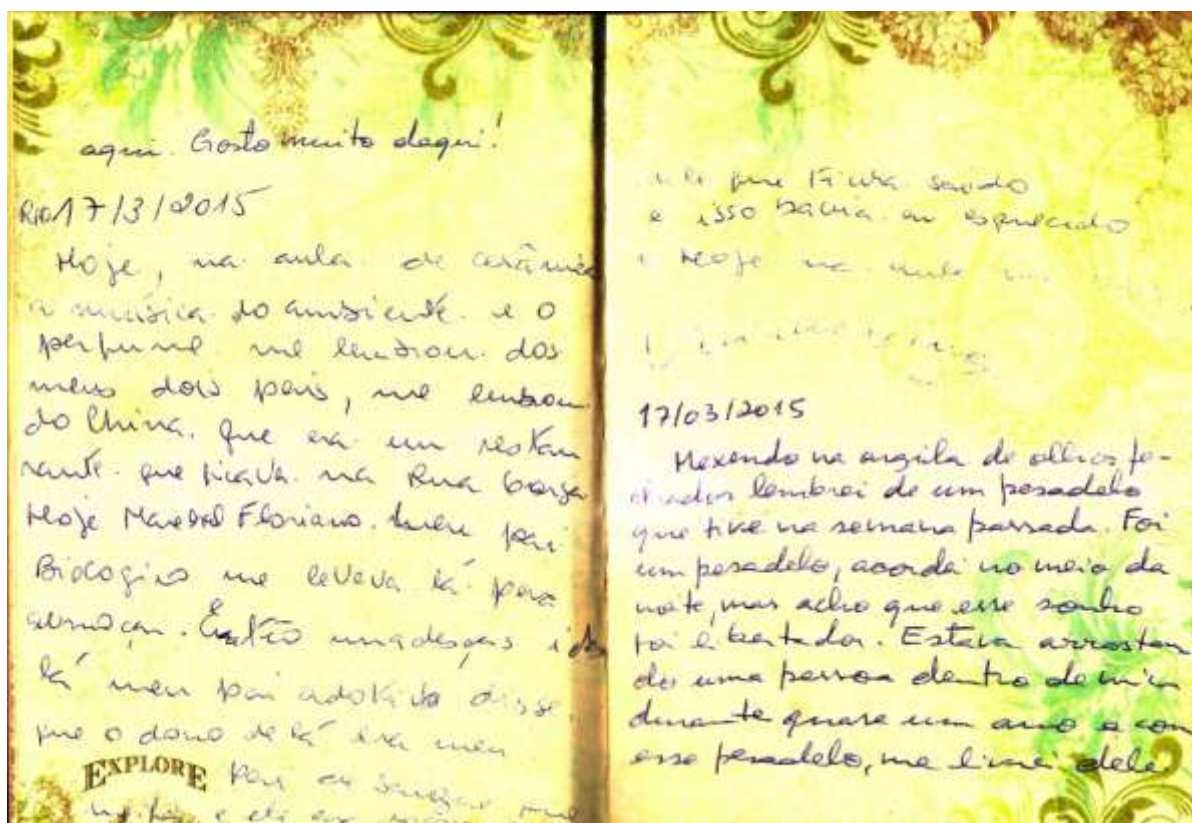 aqui. Gosto muito daqui!
Rio 17/3/2015
Hoje, na aula de cerâmica
a música do ambiente e o
perfume me lembrou dos
meus dois pais, me lembrou
do China. que era um restau
rante que ficava na Rua Larga
Hoje Marechal Floriano. meu pai
Biológico me levava lá para
almoçar. Então uma dessas idas
lá meu pai adotivo disse
que o dono de lá era meu
EXPLORE
pai de sangue que
e ele era
que tinha saído
e isso havia eu esquecido
Hoje na aula
17/03/2015
Mexendo na argila de olhos fe-
chados lembrei de um pesadelo
que tive na semana passada. Foi
um pesadelo, acordei no meio da
noite, mas acho que esse sonho
foi libertador. Estava arrastan
do uma pessoa dentro de mim
durante quase um ano e com
esse pesadelo, me livrei dele